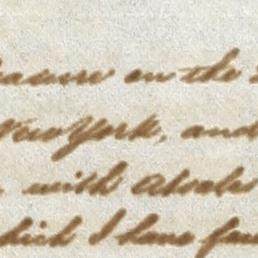 easure on the
New York, and
with
which I have